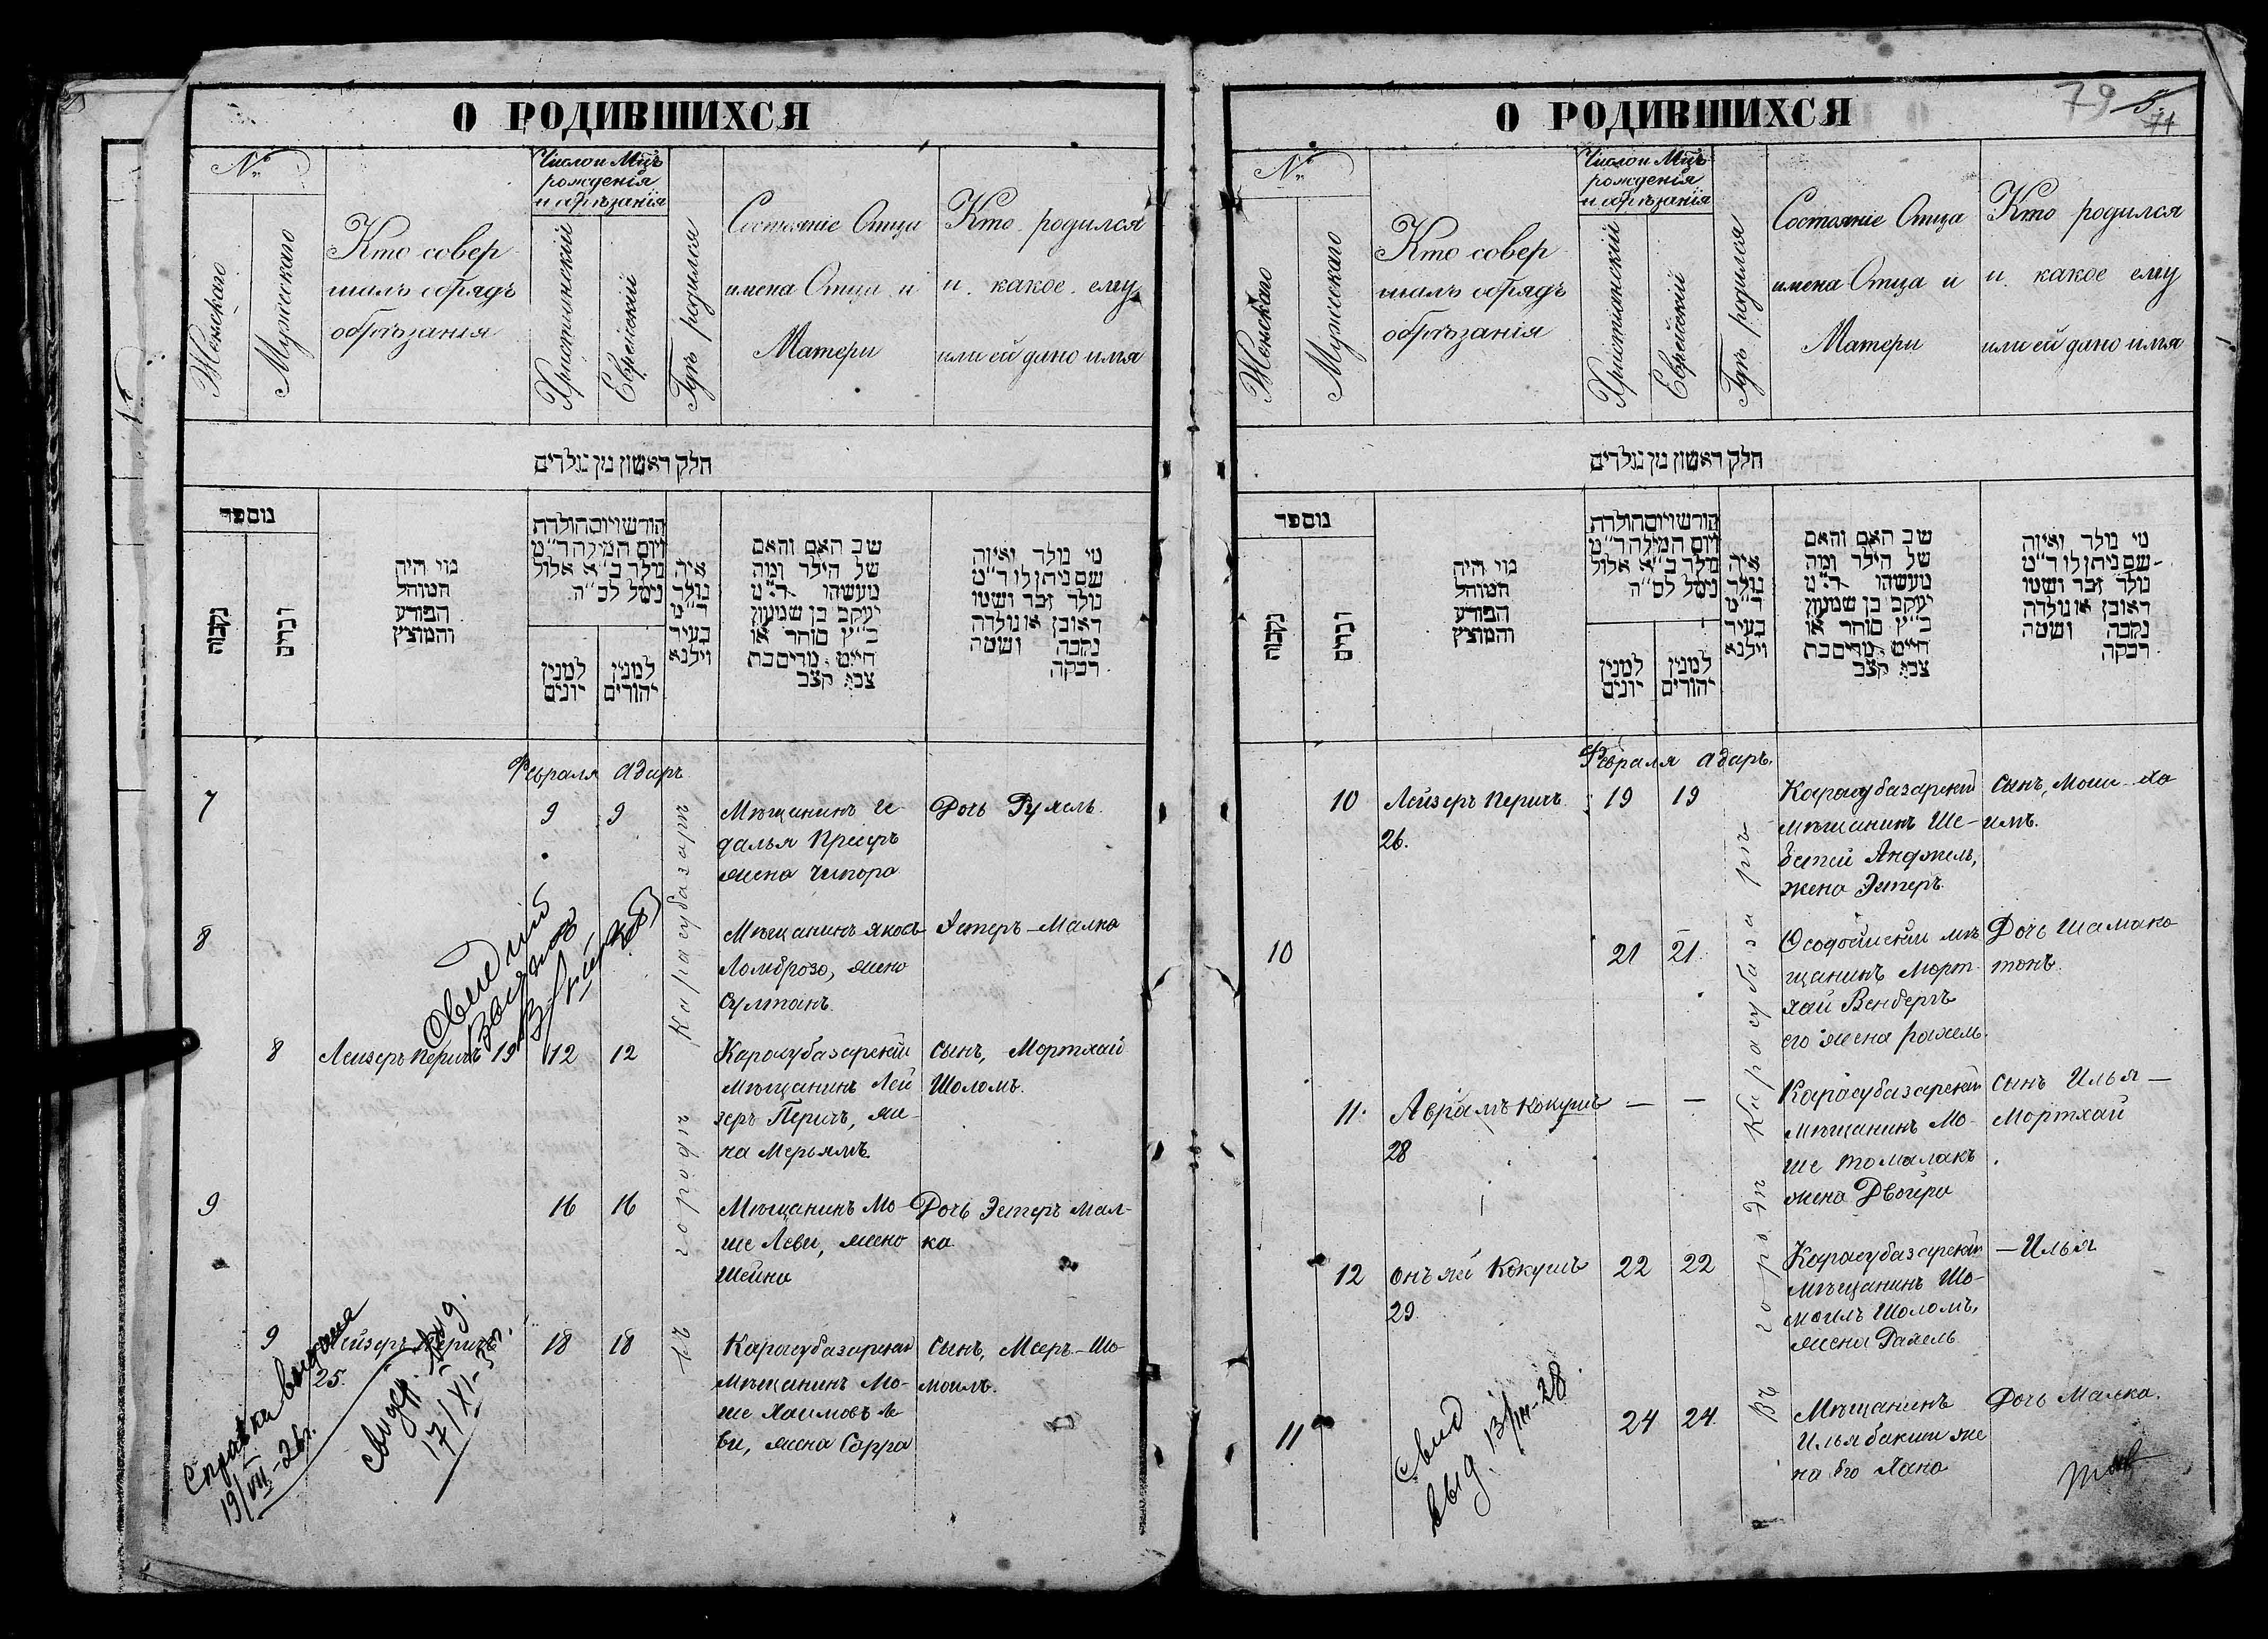 О РОДИВШИХСЯ
№
Женскаго
Мужескаго
Кто совер
шалъ обрядъ
обрѣзанія
Число и Мцъ
рожденія
и обрѣзанія
Христіянскій
Еврейскій
Гдѣ родился
Состояніе Отца
имена Отца и
Матери
Кто родился
и какое ему
или ей дано имя
חלק ראשון מן נולדים
מספר
נקבות
זכרים
מי היה
המוהל
הפורע
והמוצץ
חודש ויום הולדת
ויום המילה ד"מ
נולד ב"א אלול
נימל לב"ה
למנין
יונים
למנין
יהודים
איה
נולד
ד"מ
בעיר
וילנא
שם האב והאם
של הילד ומה
מעשהו ד"מ
יעקב בן שמעון
כ"ץ סוחר או
חייט מרים בת
צבי קצב
מי נולד ואיזה
שם ניתן לו ד"מ
נולד זכר ושמו
ראובן או נולדה
נקבה ושמה
רבקה
Февраля Адаръ
Въ городѣ Карасубазаръ
7
9 9
Мѣщанинъ
далья
жена Чипора
Дочь Рухель
8
Мѣщанинъ Яковъ
Ломброзо, жена
Султанъ
Эстеръ-Малка
8 Лейзеръ Перичъ 19 12 12
Карасубазарскій
мѣщанинъ Лей
зеръ Перичъ, же
на Мерьямъ
Сынъ, Мортхай
Шоломъ.
9
16 16
Мѣщанинъ Мо
ше Леви, жена
Шейна
Дочь Эстеръ Мал-
ка
9 Лейзеръ Перичъ 18 18
25.
Карасубазарскій
мѣщанинъ Мо-
ше Хаимовъ Ле
ви, жена Сарра
Сынъ, Мееръ-Шо
моилъ.
Справка выдана
19/VII-26г.
Свидѣ. выд.
17/XI-
О РОДИВШИХСЯ
79
5.
71
№
Женскаго
Мужескаго
Кто совер
шалъ обрядъ
обрѣзанія
Число и Мцъ
рожденія
и обрѣзанія
Христіянскій
Еврейскій
Гдѣ родился
Состояніе Отца
имена Отца и
Матери
Кто родился
и какое ему
или ей дано имя
חלק ראשון מן נולדים
מספר
נקבות
זכרים
מי היה
המוהל
הפורע
והמוצץ
חודש ויום הולדת
ויום המילה ד"מ
נולד ב"א אלול
נימל לב"ה
למנין
יונים
למנין
יהודים
איה
נולד
ד"מ
בעיר
וילנא
שם האב והאם
של הילד ומה
מעשהו ד"מ
יעקב בן שמעון
כ"ץ סוחר או
חייט מרים בת
צבי קצב
מי נולד ואיזה
שם ניתן לו ד"מ
נולד זכר ושמו
ראובן או נולדה
נקבה ושמה
רבקה
Февраля Адаръ.
Въ городѣ Карасубазарѣ
10 Лейзеръ Перичъ 19 19
26.
Карасубазарскій
мѣщанинъ Ше-
бетей Анджель,
жена Эстеръ.
Сынъ, Моше-Ха
имъ.
10
21 21
Ѳеодосійскій мѣ
щанинъМорт
хай Венбергъ
его жена Рахель.
Дочь Шамака
тонъ
11. Аврамъ Кокушъ — —
28
Карасубазарскій
мѣщанинъ Мо-
ше Томалакъ
жена Двойра
Сынъ Илья —
Мортхай
12 Онъ же Кокушъ 22 22
29.
Карасубазарскій
мѣщанинъ Шо-
моилъ Шоломъ,
жена Рахель
— Илья
11
24 24
Мѣщанинъ
Илья Бакши же
на его Хана
Дочь Малка.
Свид
выд. 13/III-28